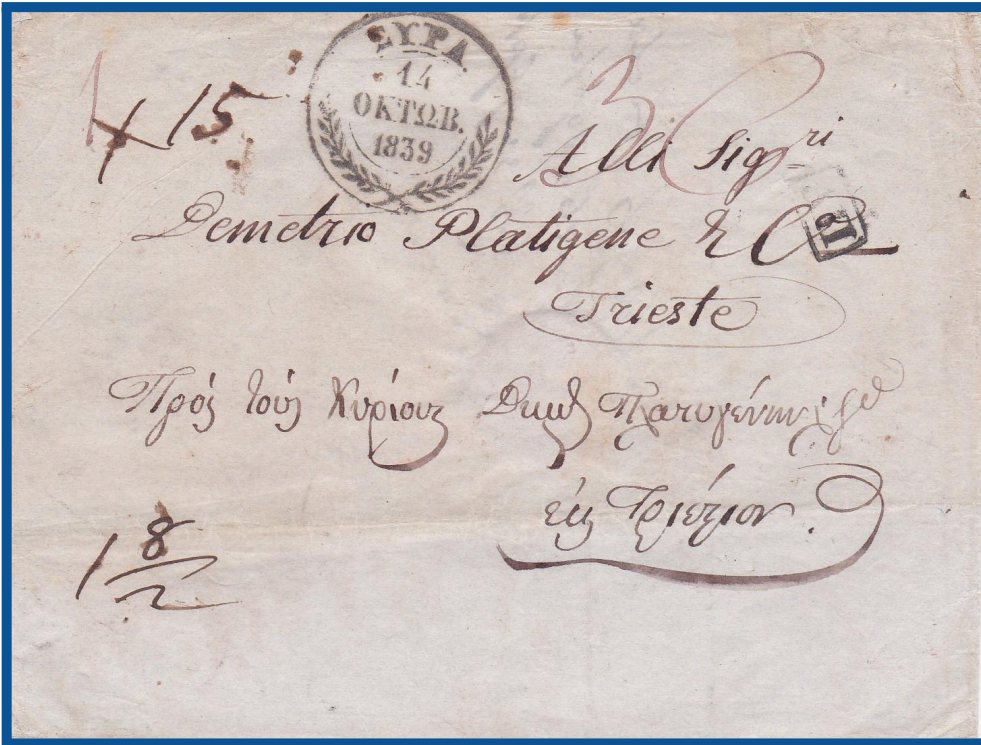 ΣΥΡΑ
14
ΟΚΤΩΒ.
1839
15
Alli Sigri
Demetrio Platigene & C
Trieste
Πρός τούς Κυρίους Πλατυγένην
εἰς Τριέστιον.
1 8/2